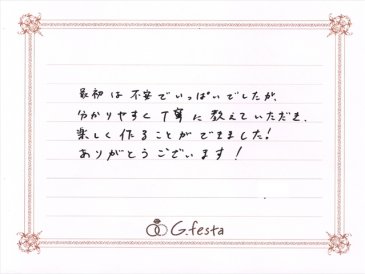 最初は不安でいっぱいでしたが、
分かりやすく丁寧に教えていただき、
楽しく作ることができました!
ありがとうございます!
G.festa